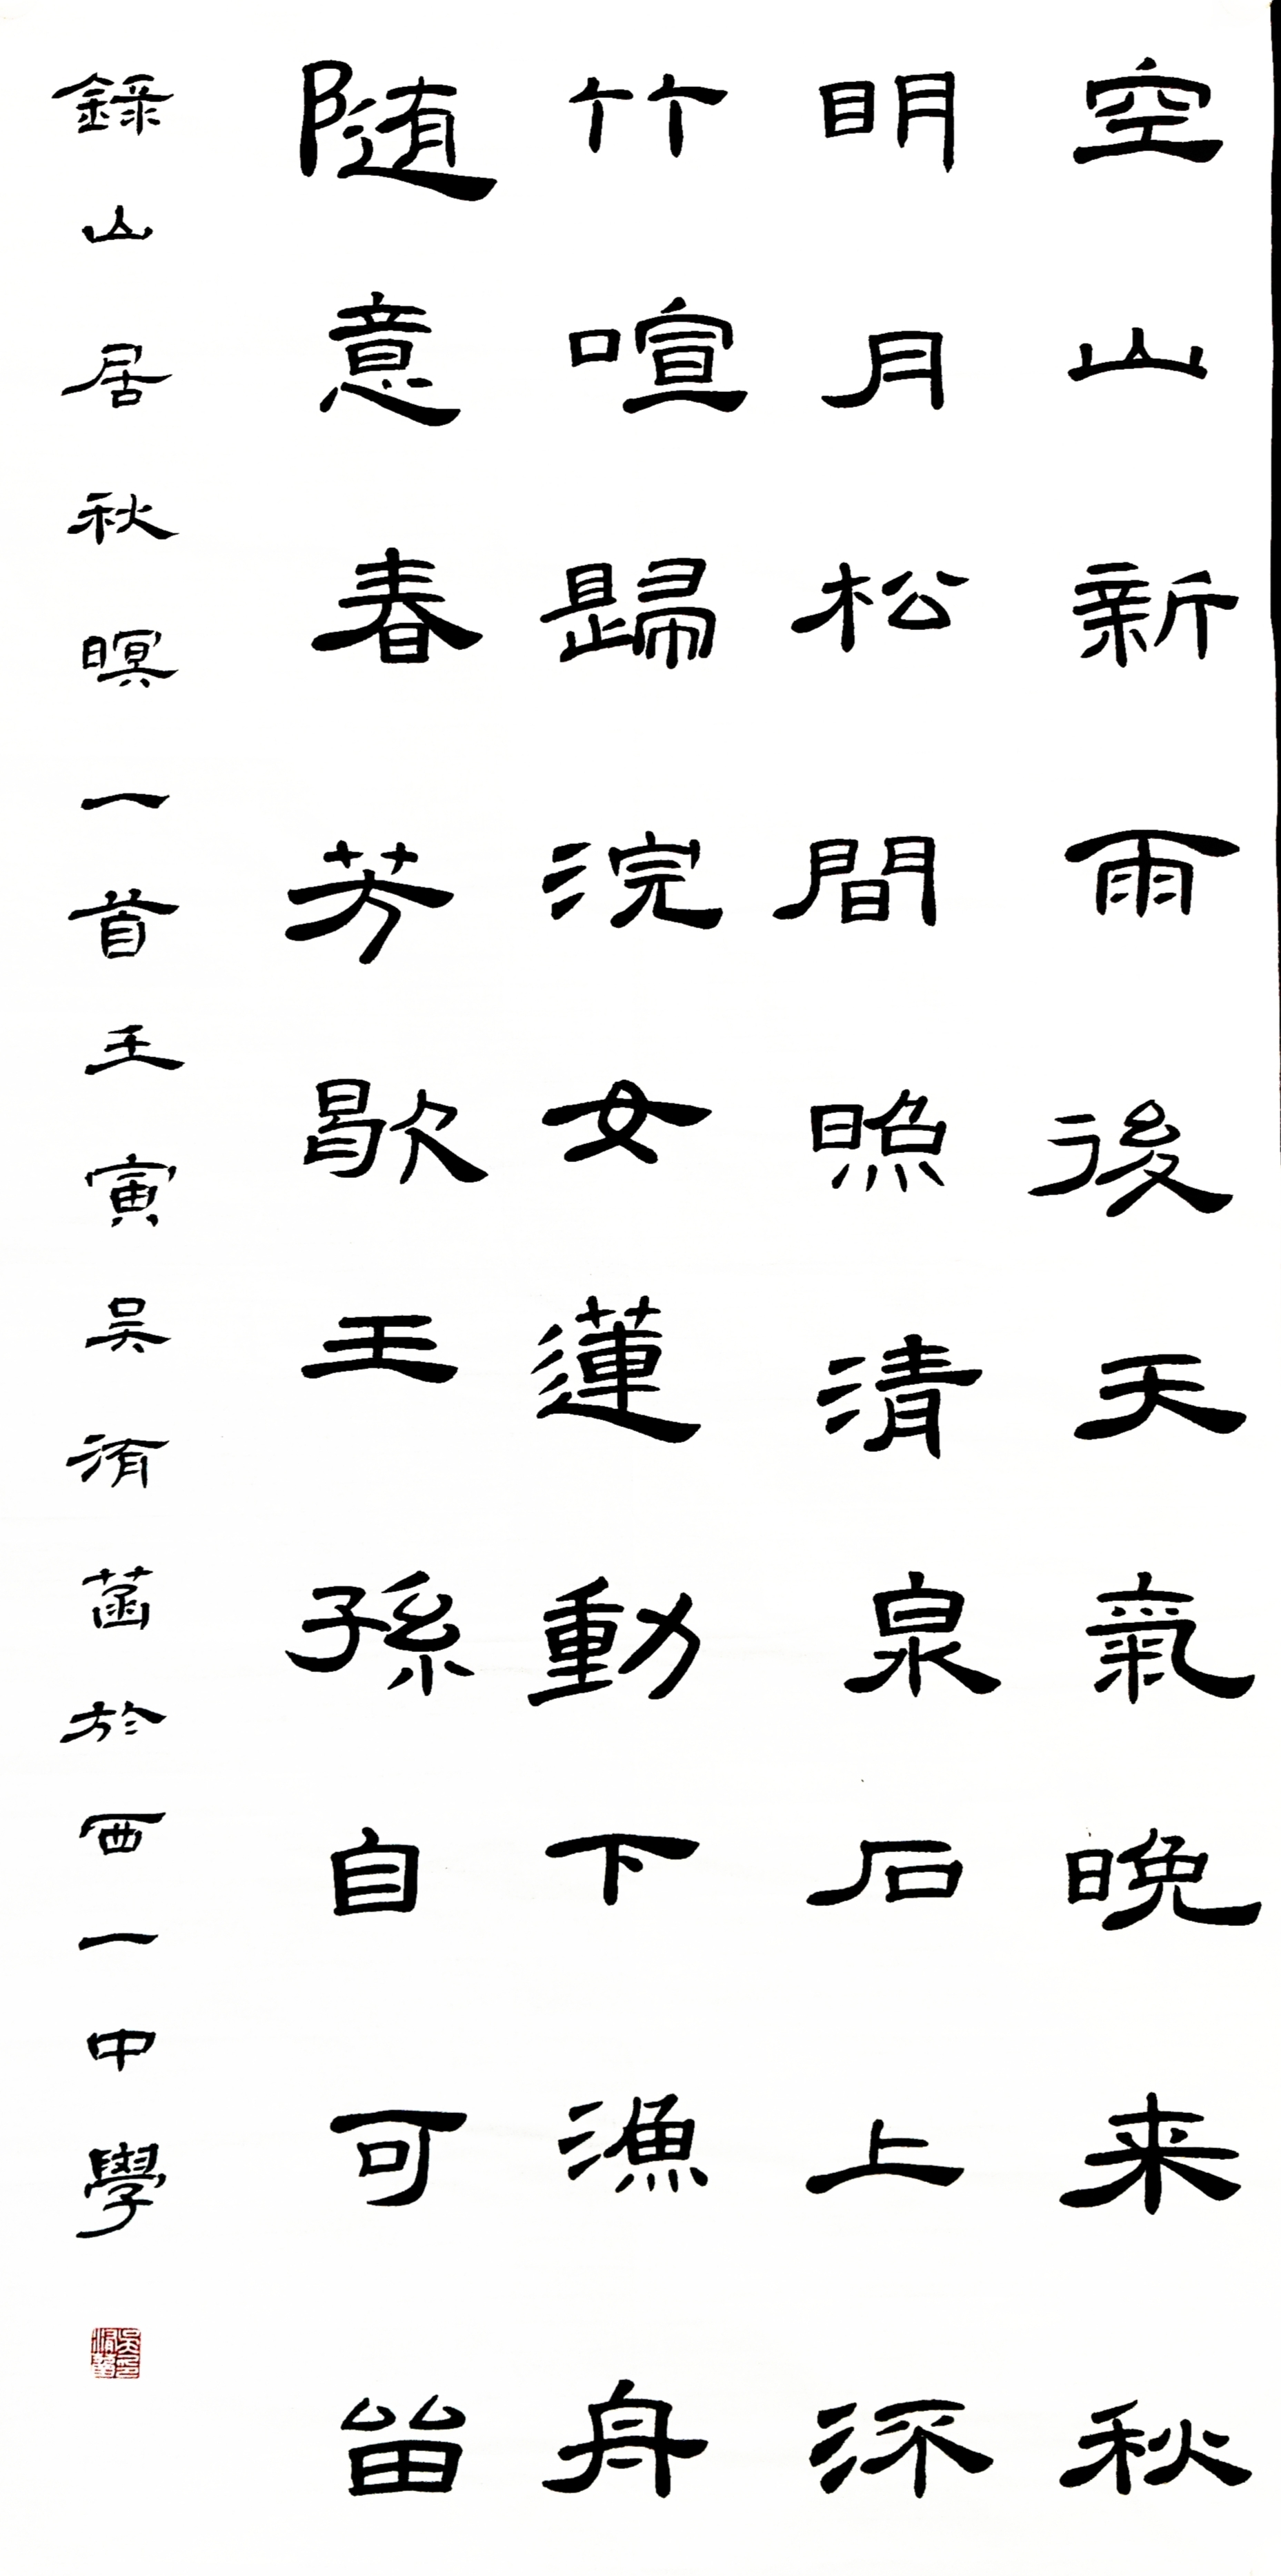 空山新雨後天氣晚来秋
明月松間照清泉石上流
竹喧歸浣女蓮動下漁舟
随意春芳歇王孫自可留
錄山居秋暝一首壬寅吴洧菡於西一中學